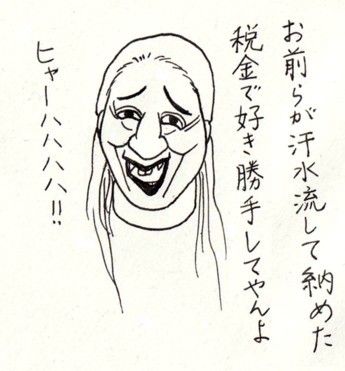 お前らが汗水流して納めた
税金で好き勝手してやんよ
ヒャーハハハハ!!